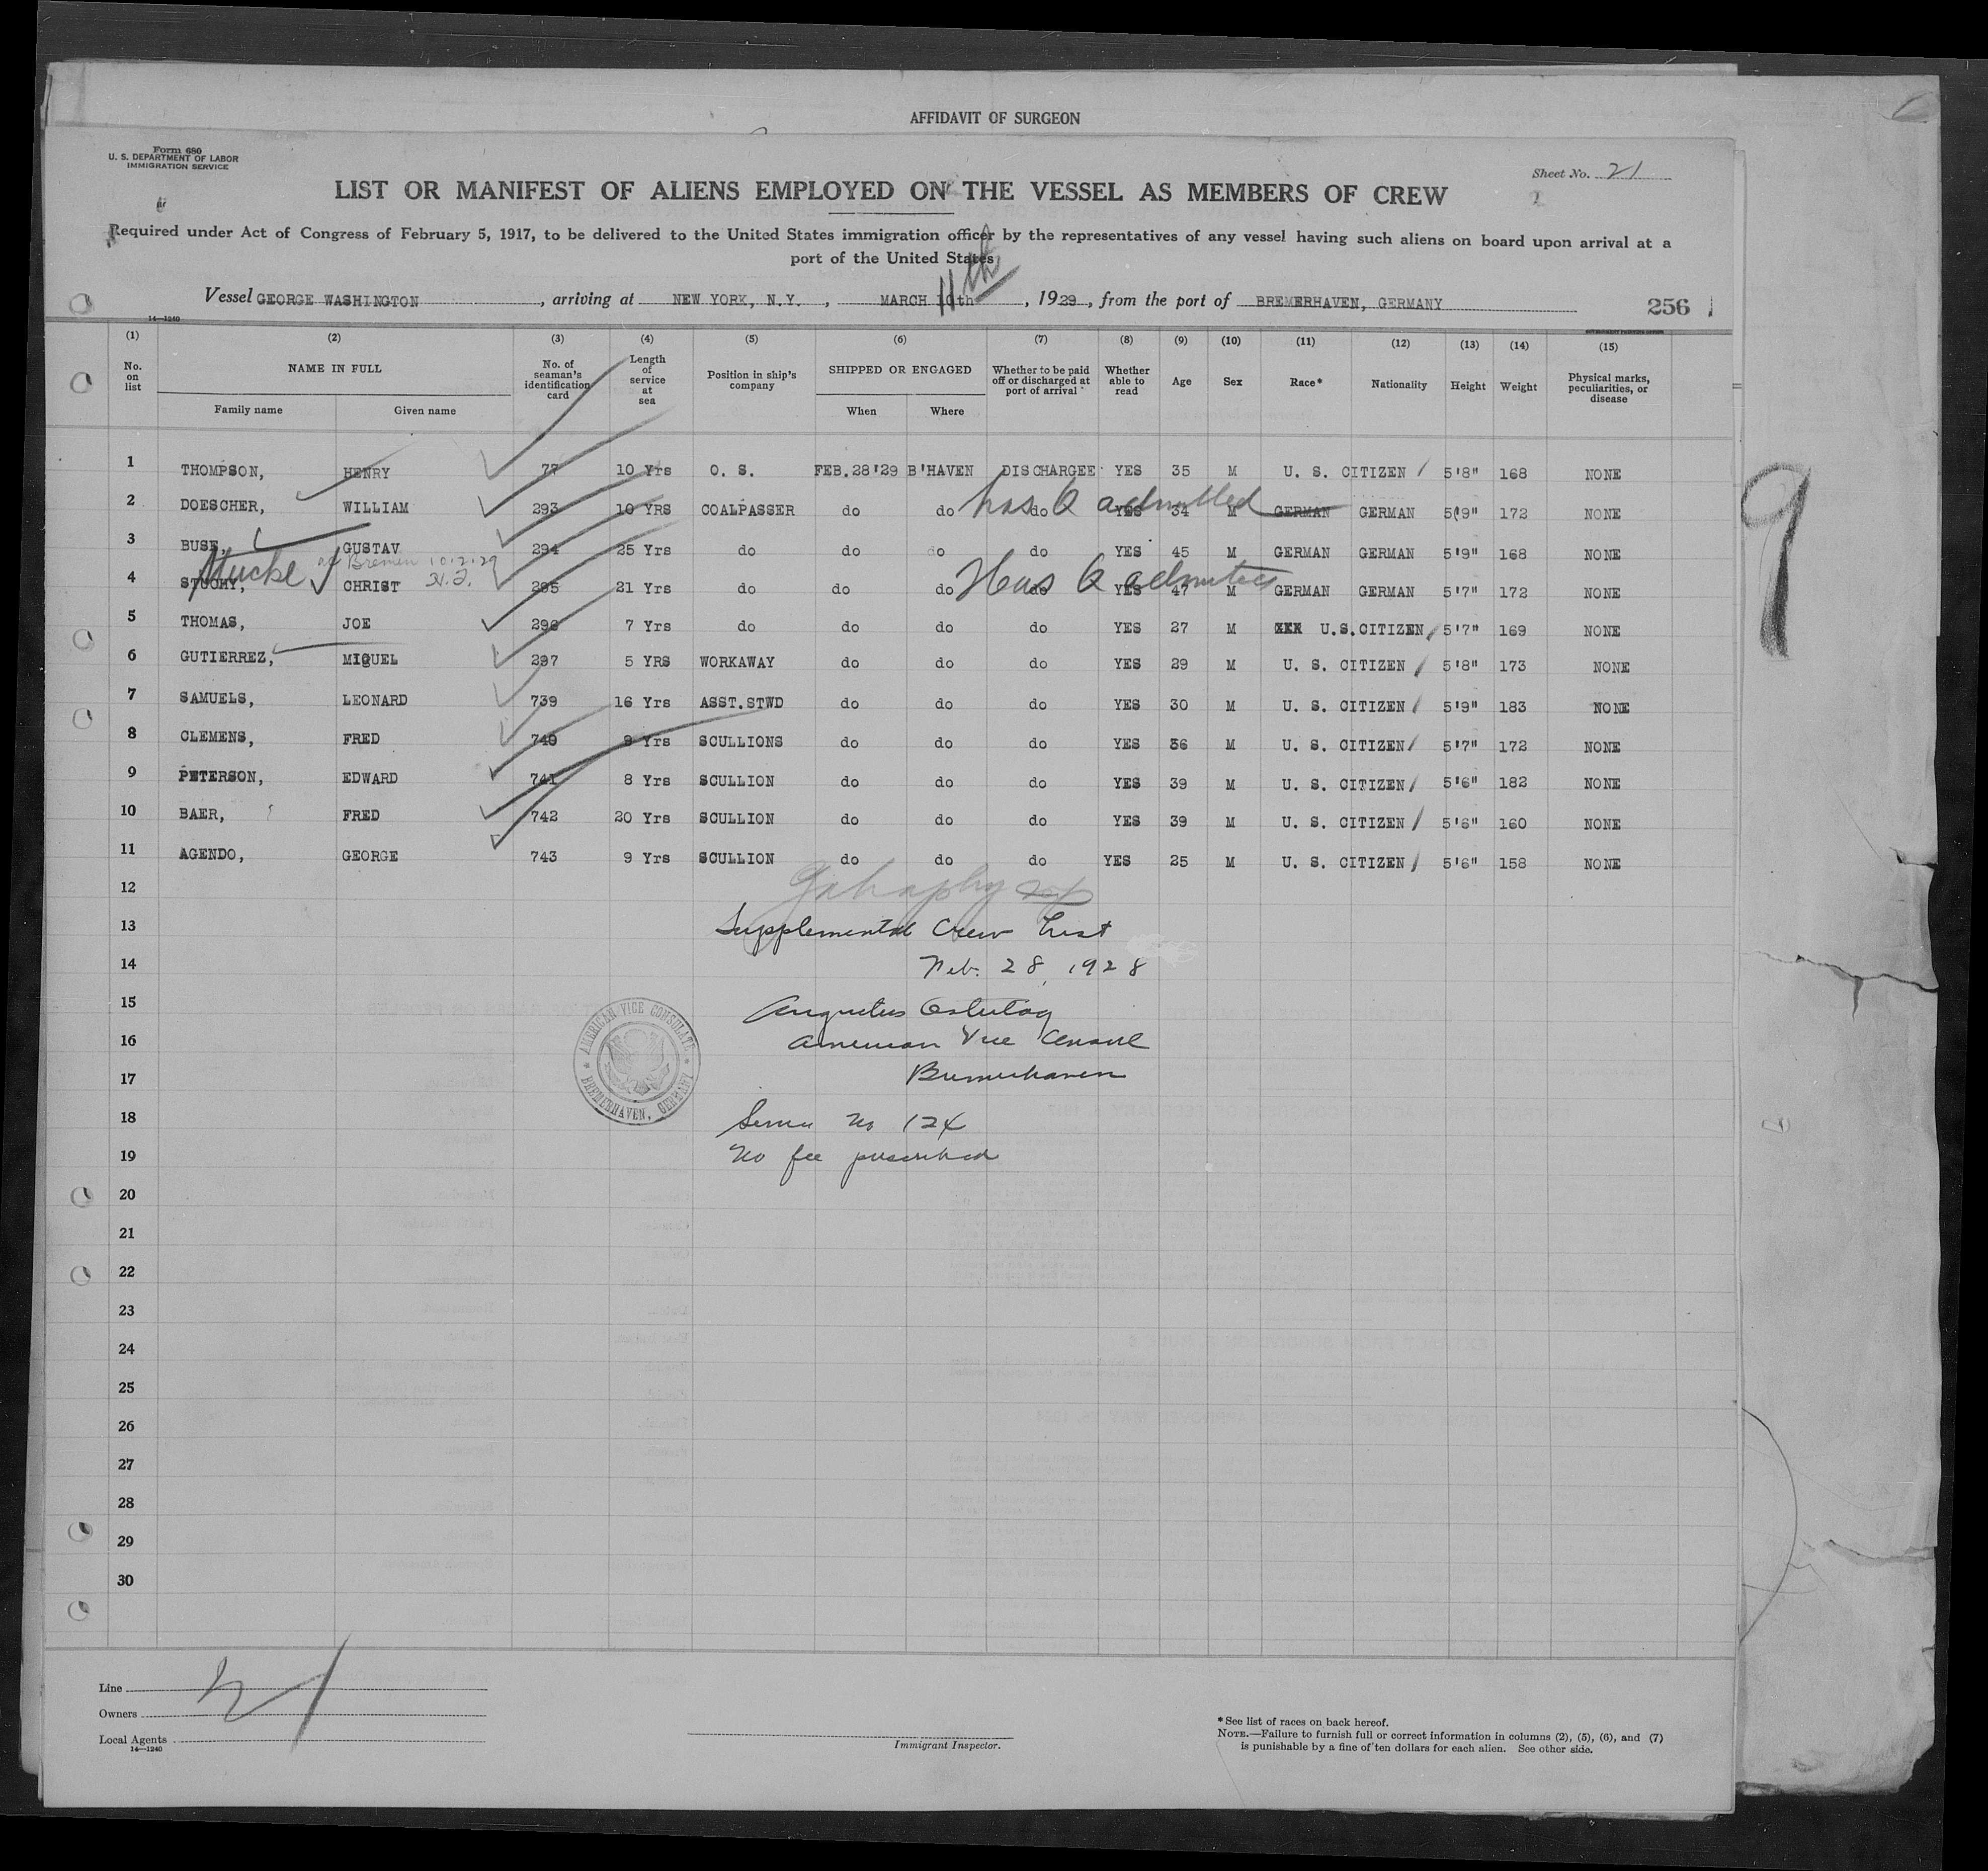 AFFIDAVIT OF SURGEON
Form 680
U. S. DEPARTMENT OF LABOR
IMMIGRATION SERVICE
Sheet No. 21
LIST OR MANIFEST OF ALIENS EMPLOYED ON THE VESSEL AS MEMBERS OF CREW
Required under Act of Congress of February 5, 1917, to be delivered to the United States immigration officer by the representatives of any vessel having such aliens on board upon arrival at a
port of the United States
11th
Vessel GEORGE WASHINGTON, arriving at NEW YORK, N.Y., MARCH 10th, 1929, from the port of BREMERHAVEN, GERMANY 256
14—1240
(1) (2) (3) (4) (5) (6) (7) (8) (9) (10) (11) (12) (13) (14) (15)
No. on list NAME IN FULL No. of seaman's identification card Length of service at sea Position in ship's company SHIPPED OR ENGAGED Whether to be paid off or discharged at port of arrival Whether able to read Age Sex Race* Nationality Height Weight Physical marks, peculiarities, or disease
Family name Given name When Where
1 THOMPSON, HENRY 77 10 Yrs O. S. FEB.28'29 B'HAVEN DISCHARGEE YES 35 M U. S. CITIZEN 5'8" 168 NONE
2 DOESCHER, WILLIAM 293 10 YRS COALPASSER do do do YES 34 M GERMAN GERMAN 5'9" 172 NONE
has admitted
3 BUSE, GUSTAV 294 25 Yrs do do do do YES 45 M GERMAN GERMAN 5'9" 168 NONE
Stucke at Bremen 10.2.29
4 STUCHY, CHRIST 295 21 Yrs do do do do YES 47 M GERMAN GERMAN 5'7" 172 NONE
Has admitted
5 THOMAS, JOE 296 7 Yrs do do do do YES 27 M XXX U.S.CITIZEN 5'7" 169 NONE
6 GUTIERREZ, MIGUEL 297 5 YRS WORKAWAY do do do YES 29 M U. S. CITIZEN 5'8" 173 NONE
7 SAMUELS, LEONARD 739 16 Yrs ASST.STWD do do do YES 30 M U. S. CITIZEN 5'9" 183 NONE
8 CLEMENS, FRED 740 9 Yrs SCULLIONS do do do YES 36 M U. S. CITIZEN 5'7" 172 NONE
9 PETERSON, EDWARD 741 8 Yrs SCULLION do do do YES 39 M U. S. CITIZEN 5'6" 182 NONE
10 BAER, FRED 742 20 Yrs SCULLION do do do YES 39 M U. S. CITIZEN 5'6" 160 NONE
11 AGENDO, GEORGE 743 9 Yrs SCULLION do do do YES 25 M U. S. CITIZEN 5'6" 158 NONE
12
13 Supplemental Crew List
14 Feb. 28, 1928
15
16 American Vice Consul
17 Bremerhaven
AMERICAN VICE CONSULATE
BREMERHAVEN, GERMANY
18 Service No 124
19 No fee prescribed
20
21
22
23
24
25
26
27
28
29
30
9
Line
21
Owners
Local Agents
14—1240
Immigrant Inspector.
*See list of races on back hereof.
NOTE.—Failure to furnish full or correct information in columns (2), (5), (6), and (7)
is punishable by a fine of ten dollars for each alien. See other side.